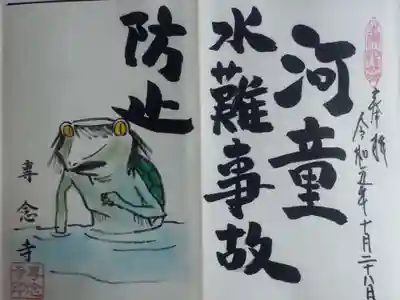 奉拝
令和五年十月二十八日
河童
水難事故
防止
専念寺